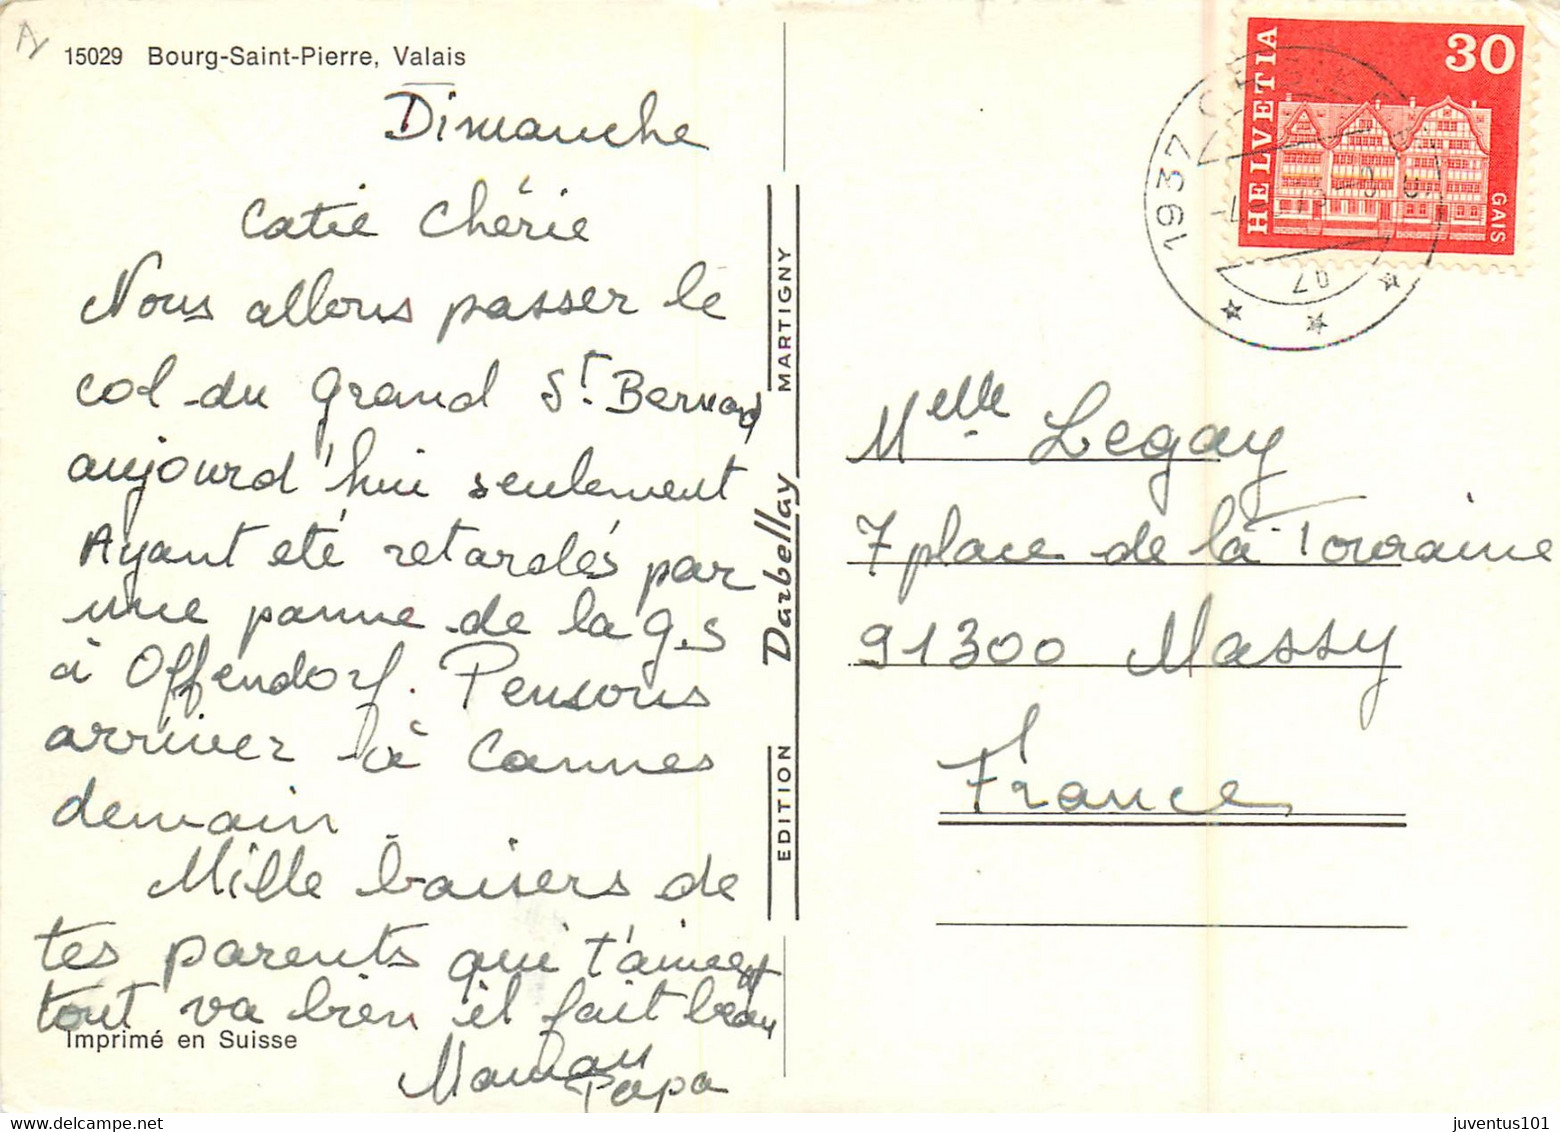 15029 Bourg-Saint-Pierre, Valais
Dimanche
Catie Chérie
Nous allons passer le
col du Grand St. Bernard
aujourd'hui seulement
Ayant été retardés par
une panne de la g.s
à Offendorf. Pensons
arriver à Cannes
demain
Mille baisers de
tes parents qui t'aiment
tout va bien il fait beau
Maman
Papa
Imprimé en Suisse
EDITION Darbellay MARTIGNY
HELVETIA
30
GAIS
1937
Melle Legay
7 place de la Touraine
91300 Massy
France
juventus101